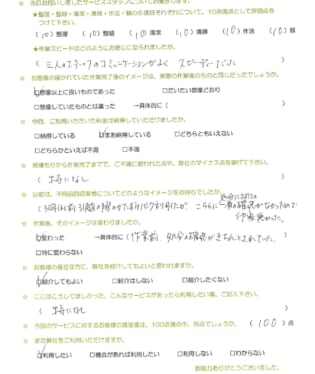 ☆ 当日お伺いしましたサービススタッフについてお聞きします。
★整理・整頓・清潔・清掃・作法・躾の6項目それぞれについて、10点満点として評価点を
つけて下さい。
(10)整理 (10)整頓 (10)清潔 (10)清掃 (10)作法 (10)躾
★作業スピードはどのようにお感じになられましたか。
(三人のスタッフのコミュニケーションがよく スピーディーだった)
☆ お客様の描かれていた作業完了後のイメージは、実際の作業後のものと同じだったでしょうか。
☑想像以上に良いものであった □だいたい想像どおり
□想像していたものとは違った →具体的に( )
☆ 今回、ご利用いただいた料金は納得していただけましたか。
□納得している ☑まあ納得している □どちらともいえない
□どちらかといえば不満 □不満
☆ 見積もりから作業完了までで、ご不満に思われた点や、弊社のマイナス点を挙げて下さい。
(特になし )
☆ 以前は、不用品回収業者についてどのようなイメージをお持ちでしたか。
☆ 作業後、そのイメージは変わりましたか。
☑変わった →具体的に(作業前、処分の確認がきちんとされていた。)
□特に変わらない
☆ お客様の身近な方に、弊社を紹介してもよいと思われますか。
☑紹介してもよい □紹介はしない □紹介したくない
☆ ここはこうしてほしかった、こんなサービスがあったら利用したい等、ご記入下さい。
(特になし )
☆ 今回のサービスに対するお客様の満足度は、100点満点中、何点でしょうか。 (100)点
☆ また弊社をご利用いただけますか。
☑利用したい □機会があれば利用したい □利用しない □わからない
ご協力ありがとうございました。